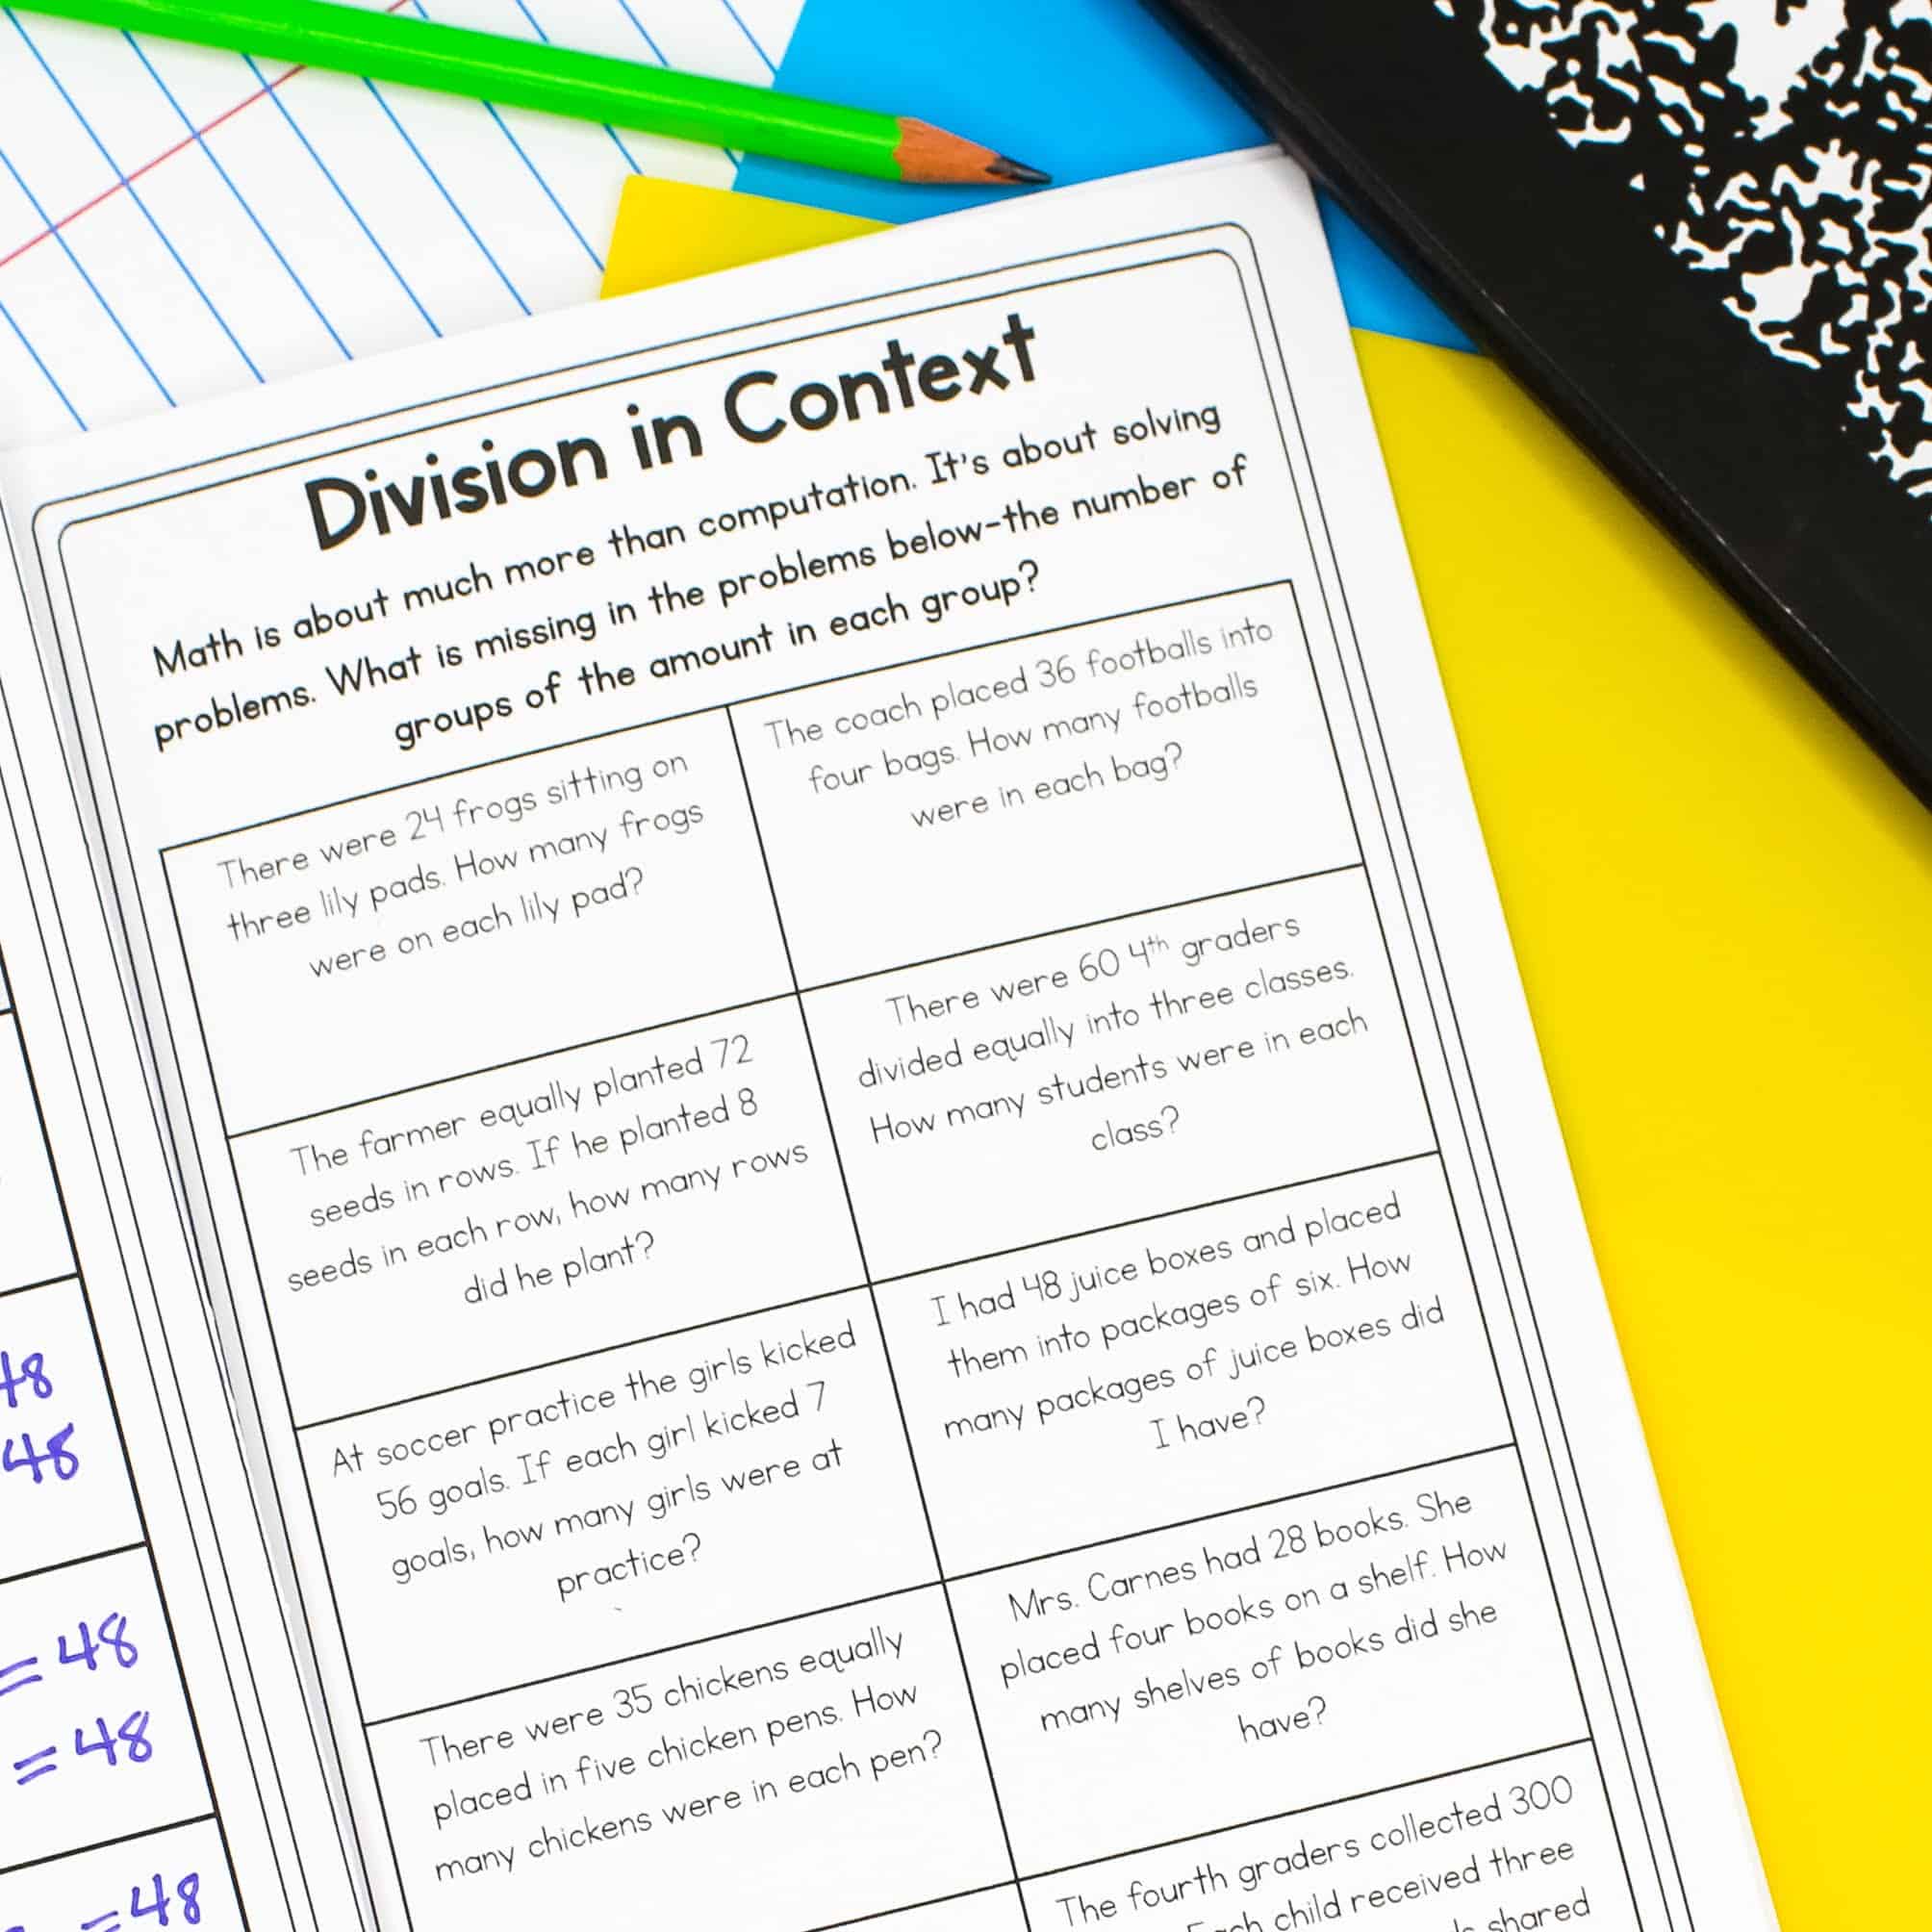 Division in Context
Math is about much more than computation. It's about solving
problems. What is missing in the problems below-the number of
groups of the amount in each group?
There were 24 frogs sitting on
three lily pads. How many frogs
were on each lily pad?
The coach placed 36 footballs into
four bags. How many footballs
were in each bag?
The farmer equally planted 72
seeds in rows. If he planted 8
seeds in each row, how many rows
did he plant?
There were 60 4th graders
divided equally into three classes.
How many students were in each
class?
At soccer practice the girls kicked
56 goals. If each girl kicked 7
goals, how many girls were at
practice?
I had 48 juice boxes and placed
them into packages of six. How
many packages of juice boxes did
I have?
There were 35 chickens equally
placed in five chicken pens. How
many chickens were in each pen?
Mrs. Carnes had 28 books. She
placed four books on a shelf. How
many shelves of books did she
have?
The fourth graders collected 300
child received three
shared
48
48
= 48
= 48
=48